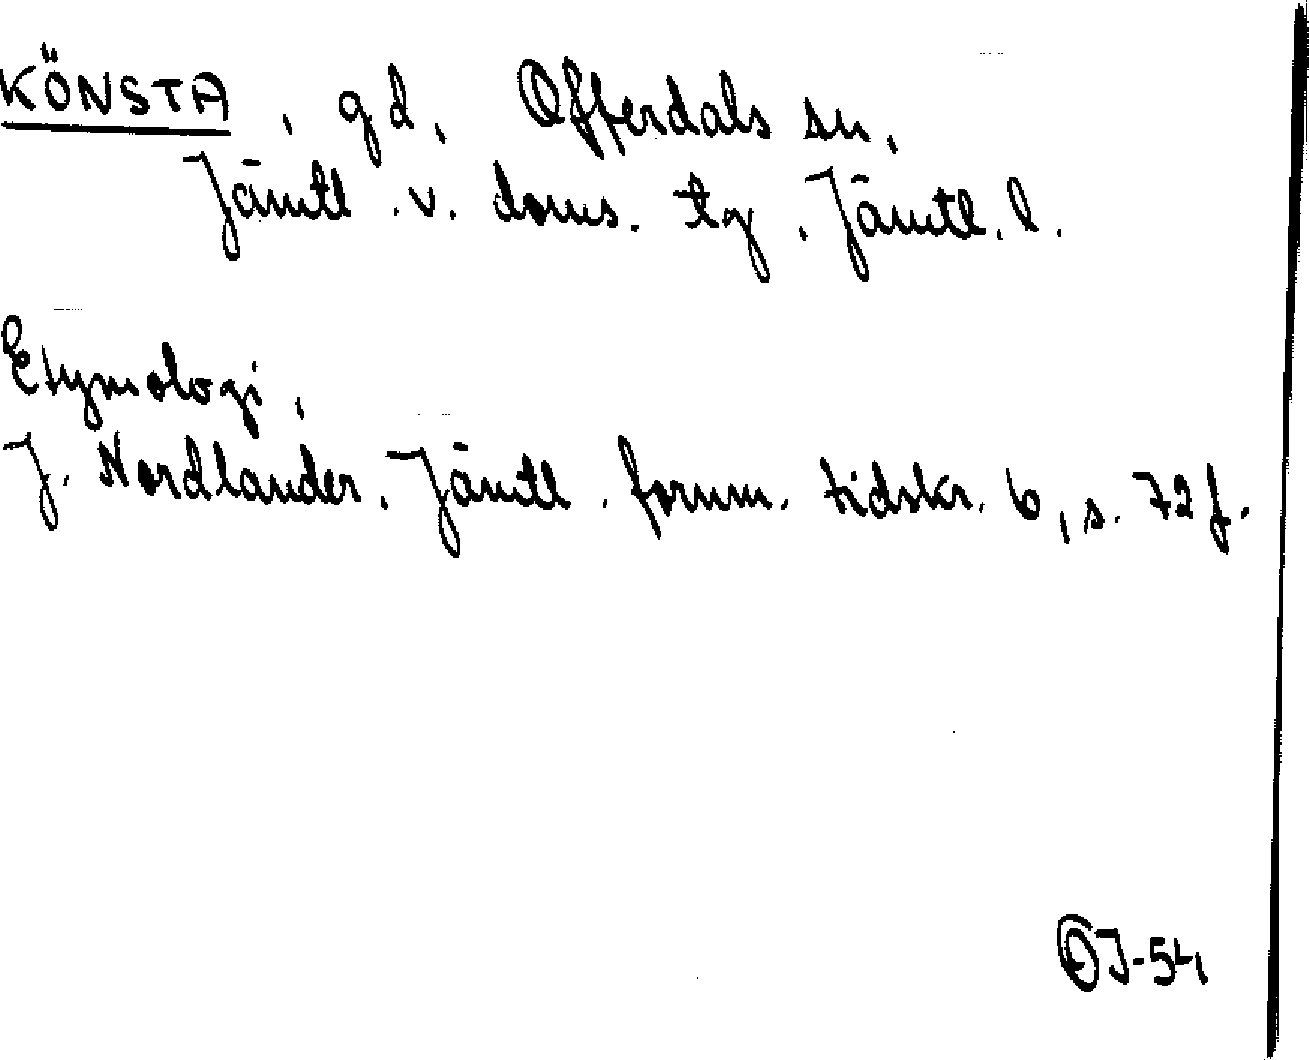 KÖNSTA, gd, Offerdals sn,
Jämtl. v. doms. tg, Jämtl. l.
Etymologi,
J. Nordlander, Jämtl. fornm. tidskr. 6, s. 72 f.
OJ-54